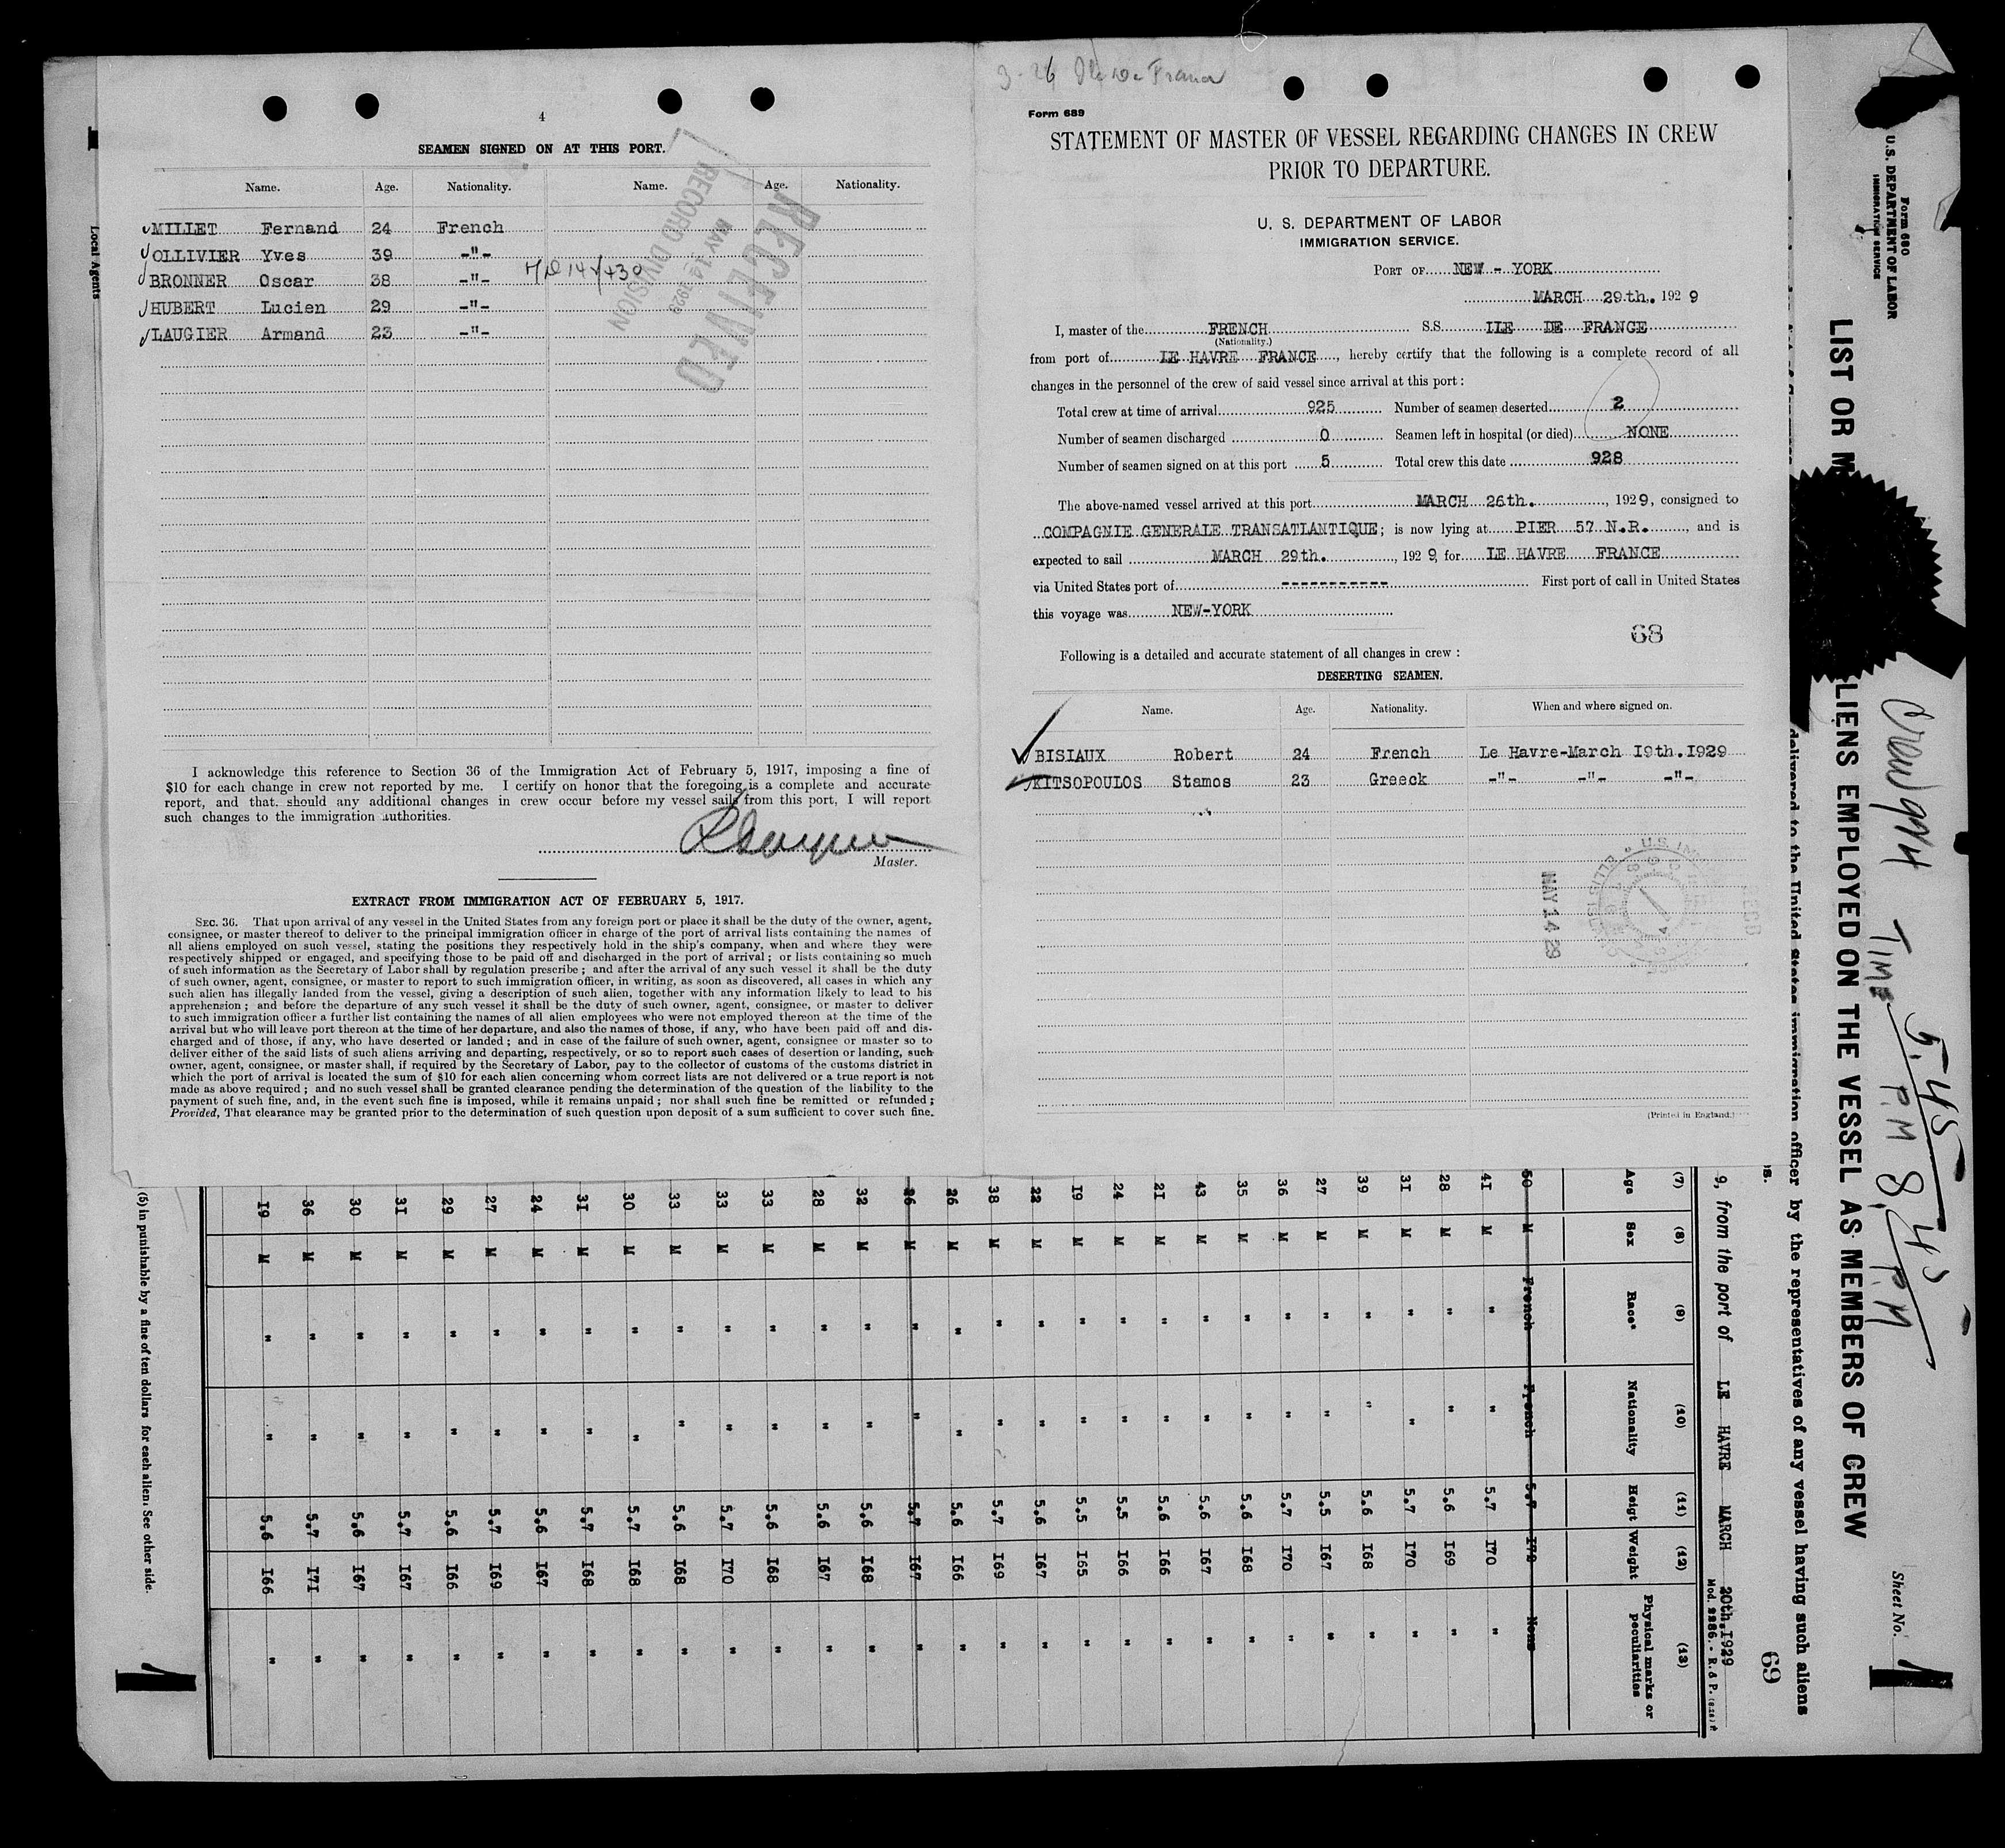 4
SEAMEN SIGNED ON AT THIS PORT.
Name. Age. Nationality. Name. Age. Nationality.
MILLET Fernand 24 French
OLLIVIER Yves 39 -"-
BRONNER Oscar 38 -"-
HUBERT Lucien 29 -"-
LAUGIER Armand 23 -"-
RECEIVED
MAY 14 1929
RECORD DIVISION
Local Agents
I acknowledge this reference to Section 36 of the Immigration Act of February 5, 1917, imposing a fine of
$10 for each change in crew not reported by me. I certify on honor that the foregoing is a complete and accurate
report, and that should any additional changes in crew occur before my vessel sails from this port, I will report
such changes to the immigration authorities.
Master.
EXTRACT FROM IMMIGRATION ACT OF FEBRUARY 5, 1917.
SEC. 36. That upon arrival of any vessel in the United States from any foreign port or place it shall be the duty of the owner, agent,
consignee, or master thereof to deliver to the principal immigration officer in charge of the port of arrival lists containing the names of
all aliens employed on such vessel, stating the positions they respectively hold in the ship's company, when and where they were
respectively shipped or engaged, and specifying those to be paid off and discharged in the port of arrival; or lists containing so much
of such information as the Secretary of Labor shall by regulation prescribe; and after the arrival of any such vessel it shall be the duty
of such owner, agent, consignee, or master to report to such immigration officer, in writing, as soon as discovered, all cases in which any
such alien has illegally landed from the vessel, giving a description of such alien, together with any information likely to lead to his
apprehension; and before the departure of any such vessel it shall be the duty of such owner, agent, consignee, or master to deliver
to such immigration officer a further list containing the names of all alien employees who were not employed thereon at the time of the
arrival but who will leave port thereon at the time of her departure, and also the names of those, if any, who have been paid off and dis-
charged and of those, if any, who have deserted or landed; and in case of the failure of such owner, agent, consignee or master so to
deliver either of the said lists of such aliens arriving and departing, respectively, or so to report such cases of desertion or landing, such
owner, agent, consignee, or master shall, if required by the Secretary of Labor, pay to the collector of customs of the customs district in
which the port of arrival is located the sum of $10 for each alien concerning whom correct lists are not delivered or a true report is not
made as above required; and no such vessel shall be granted clearance pending the determination of the question of the liability to the
payment of such fine, and, in the event such fine is imposed, while it remains unpaid; nor shall such fine be remitted or refunded;
Provided, That clearance may be granted prior to the determination of such question upon deposit of a sum sufficient to cover such fine.
3-26 Ile De France
Form 689
STATEMENT OF MASTER OF VESSEL REGARDING CHANGES IN CREW
PRIOR TO DEPARTURE.
U. S. DEPARTMENT OF LABOR
IMMIGRATION SERVICE.
PORT OF NEW - YORK
MARCH 29th. 1929
I, master of the FRENCH S.S. ILE DE FRANCE
(Nationality.)
from port of LE HAVRE FRANCE, hereby certify that the following is a complete record of all
changes in the personnel of the crew of said vessel since arrival at this port:
Total crew at time of arrival 925 Number of seamen deserted 2
Number of seamen discharged 0 Seamen left in hospital (or died) NONE
Number of seamen signed on at this port 5 Total crew this date 928
The above-named vessel arrived at this port MARCH 26th., 1929, consigned to
COMPAGNIE GENERALE TRANSATLANTIQUE; is now lying at PIER 57 N.R., and is
expected to sail MARCH 29th., 1929, for LE HAVRE FRANCE
via United States port of ----------- First port of call in United States
this voyage was NEW-YORK
68
Following is a detailed and accurate statement of all changes in crew:
DESERTING SEAMEN.
Name. Age. Nationality. When and where signed on.
BISIAUX Robert 24 French Le Havre-March I9th.I929
KITSOPOULOS Stamos 23 Greeck -"- -"- -"-
MAY 14 29
(Printed in England.)
Form 680
U.S. DEPARTMENT OF LABOR
IMMIGRATION SERVICE
LIST OR M
LIENS EMPLOYED ON THE VESSEL AS MEMBERS OF CREW
Sheet No. 1
Crew 944 TIME 5.45 P.M 8.45 P.M
delivered to the United States immigration officer by the representatives of any vessel having such aliens
69
9, from the port of LE HAVRE MARCH 20th.I929
Mod. 2286. - R. & P.
(7) (8) (9) (10) (11) (12) (13)
Age Sex Race* Nationality Heigt Weight Physical marks or peculiarities
50 M French French 5.7 I72 None
4I M " " 5.7 I70 "
28 M " " 5.6 I69 "
3I M " " 5.7 I70 "
39 M " " 5.6 I68 "
27 M " " 5.5 I67 "
36 M " " 5.7 I70 "
35 M " " 5.6 I68 "
43 M " " 5.6 I67 "
2I M " " 5.6 I66 "
24 M " " 5.5 I66 "
I9 M " " 5.5 I65 "
22 M " " 5.6 I67 "
38 M " " 5.7 I69 "
26 M " " 5.6 I66 "
26 M " " 5.7 I67 "
32 M " " 5.6 I68 "
28 M " " 5.6 I67 "
33 M " " 5.6 I68 "
33 M " " 5.7 I70 "
33 M " " 5.6 I68 "
30 M " " 5.7 I68 "
3I M " " 5.7 I68 "
24 M " " 5.6 I67 "
27 M " " 5.7 I69 "
29 M " " 5.6 I66 "
3I M " " 5.7 I67 "
30 M " " 5.6 I67 "
36 M " " 5.7 I7I "
I9 M " " 5.6 I66 "
(5) in punishable by a fine of ten dollars for each alien. See other side.